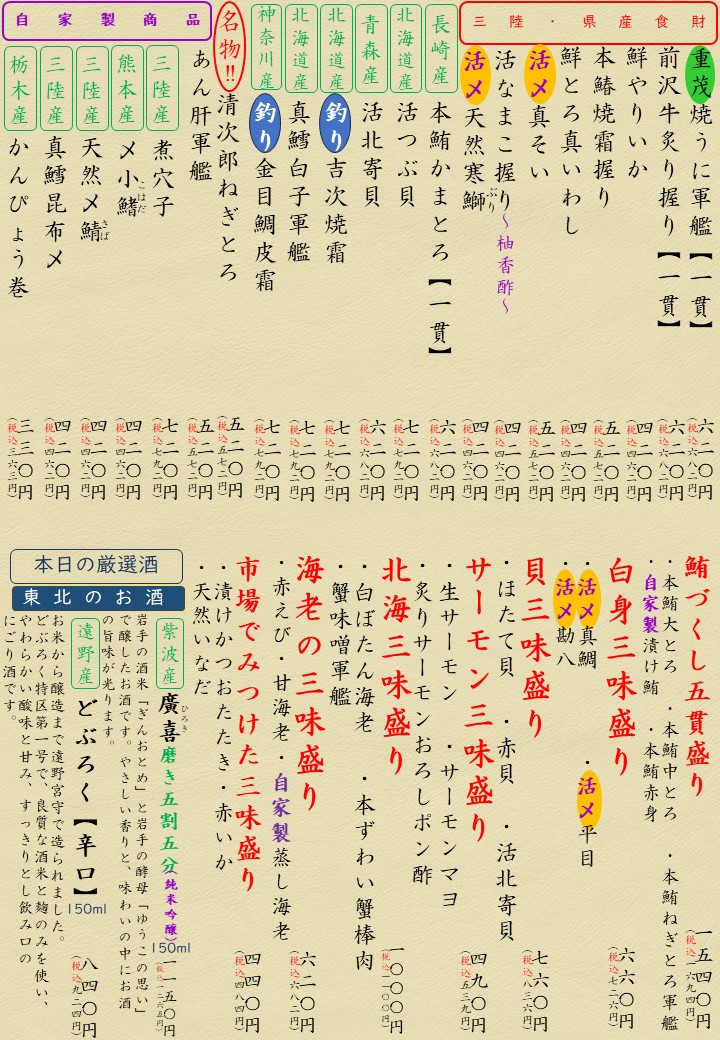 三陸・県産食財
重茂焼うに軍艦【一貫】 六二〇円 (税込六八二円)
前沢牛炙り握り【一貫】 六二〇円 (税込六八二円)
鮮やりいか 四二〇円 (税込四六二円)
本鰆焼霜握り 五二〇円 (税込五七二円)
鮮とろ真いわし 四二〇円 (税込四六二円)
活〆真そい 五二〇円 (税込五七二円)
活なまこ握り〜柚香酢〜 四二〇円 (税込四六二円)
活〆天然寒鰤 ぶり 四二〇円 (税込四六二円)
長崎産 本鮪かまとろ【一貫】 六二〇円 (税込六八二円)
北海道産 活つぶ貝 七二〇円 (税込七九二円)
青森産 活北寄貝 六二〇円 (税込六八二円)
北海道産 釣り吉次焼霜 七二〇円 (税込七九二円)
北海道産 真鱈白子軍艦 七二〇円 (税込七九二円)
神奈川産 釣り金目鯛皮霜 七二〇円 (税込七九二円)
名物!!清次郎ねぎとろ 五二〇円 (税込五七二円)
自家製商品
あん肝軍艦 五二〇円 (税込五七二円)
三陸産 煮穴子 七二〇円 (税込七九二円)
熊本産 〆小鰭 こはだ 四二〇円 (税込四六二円)
三陸産 天然〆鯖 さば 四二〇円 (税込四六二円)
三陸産 真鱈昆布〆 四二〇円 (税込四六二円)
栃木産 かんぴょう巻 三三〇円 (税込三六三円)
鮪づくし五貫盛り 一五四〇円 (税込一六九四円)
・本鮪大とろ ・本鮪中とろ ・本鮪ねぎとろ軍艦
・自家製漬け鮪 ・本鮪赤身
白身三味盛り 六六〇円 (税込七二六円)
・活〆真鯛 ・活〆平目
・活〆勘八
貝三味盛り 七六〇円 (税込八三六円)
・ほたて貝 ・赤貝 ・活北寄貝
サーモン三味盛り 四九〇円 (税込五三九円)
・生サーモン ・サーモンマヨ
・炙りサーモンおろしポン酢
北海三味盛り 一〇〇〇円 (税込一一〇〇円)
・白ぼたん海老 ・本ずわい蟹棒肉
・蟹味噌軍艦
海老の三味盛り 六二〇円 (税込六八二円)
・赤えび・甘海老・自家製蒸し海老
市場でみつけた三味盛り 四四〇円 (税込四八四円)
・漬けかつおたたき・赤いか
・天然いなだ
本日の厳選酒
東北のお酒
紫波産 廣喜 ひろき 磨き五割五分(純米吟醸) 150ml 一一五〇円 (税込一二六五円)
岩手の酒米「ぎんおとめ」と岩手の酵母「ゆうこの思い」
で醸したお酒です。やさしい香りと、味わいの中にお酒
の旨味が光ります。
遠野産 どぶろく【辛口】 150ml 八四〇円 (税込九二四円)
お米から醸造まで遠野宮守で造られました。
どぶろく特区第一号で、良質な酒米と麹のみを使い、
やわらかい酸味と甘み、すっきりとし飲み口の
にごり酒です。